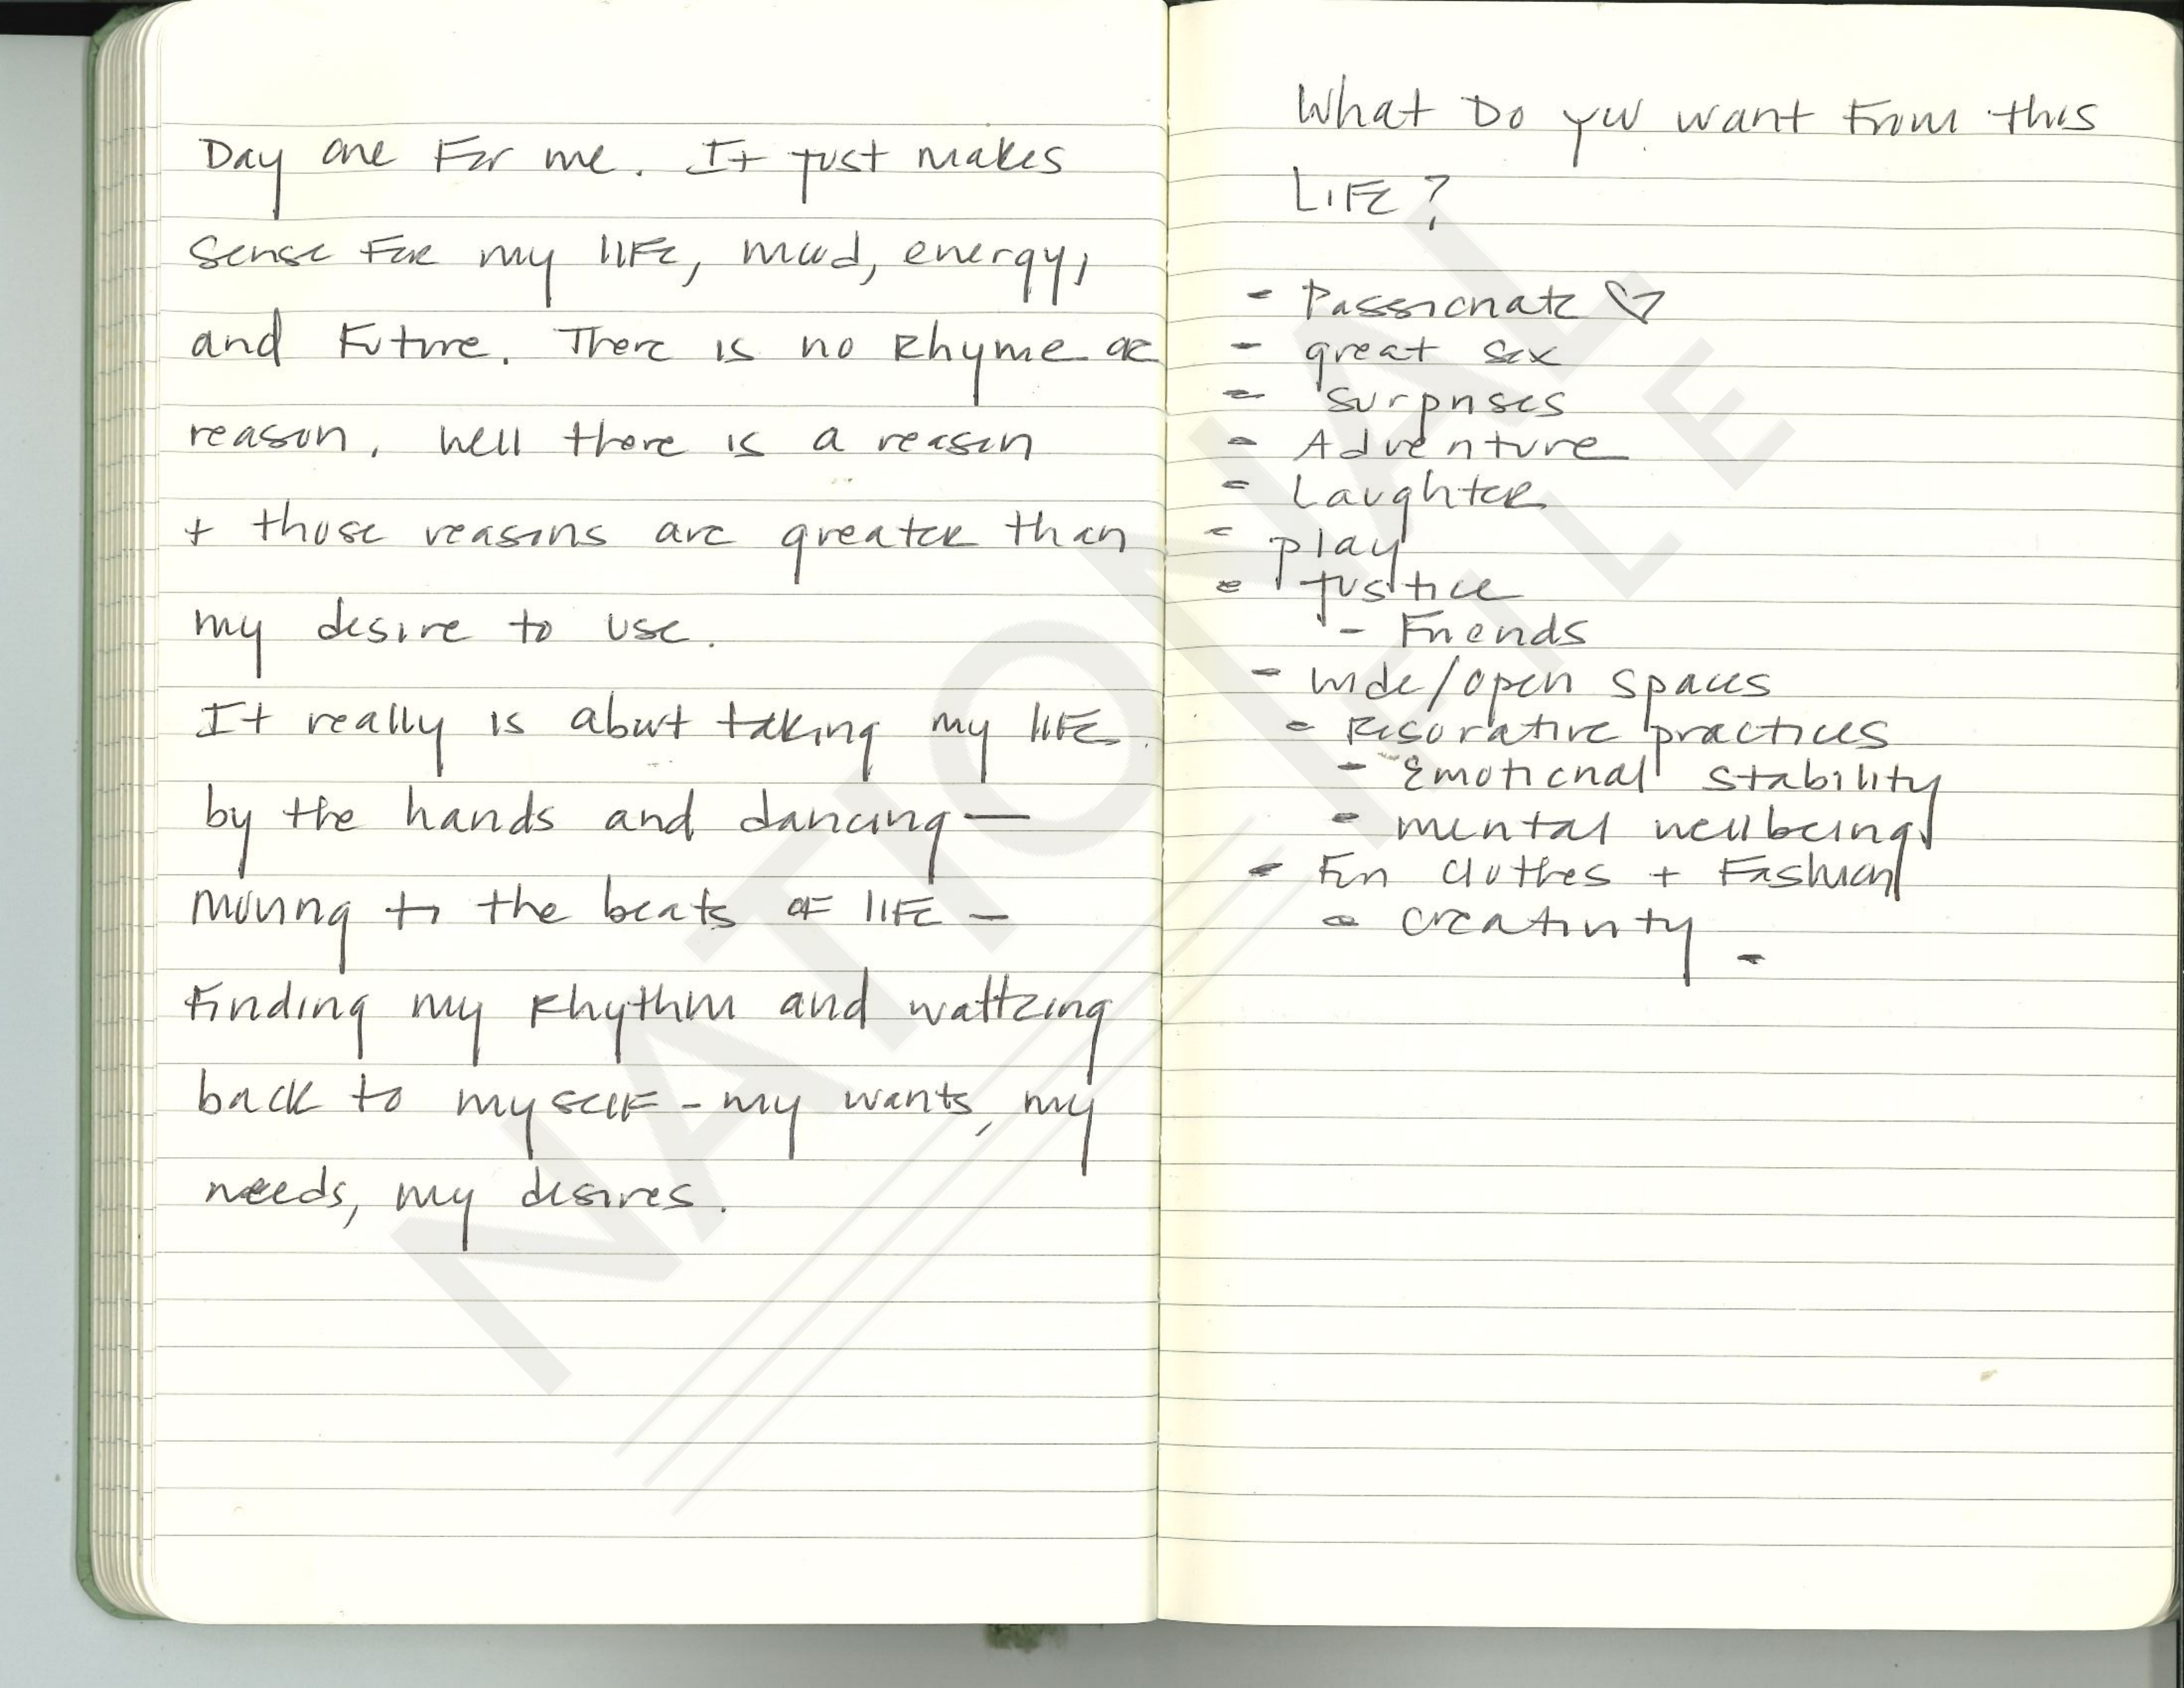 Day one For me. It just makes
sense For my life, mood, energy,
and Future. There is no Rhyme or
reason. Well there is a reason
+ those reasons are greater than
my desire to use.
It really is about taking my life
by the hands and dancing —
moving to the beats of life —
Finding my Rhythm and waltzing
back to myself - my wants, my
needs, my desires.
What Do you want From this
LIFE?
- Passionate ♡
- great sex
- surprises
- Adventure
- Laughter
- play
- justice
- Friends
- wide/open spaces
- Resorative practices
- Emotional stability
- mental wellbeing
- Fun clothes + Fashion
- creativity -
NATIONAL
FILE